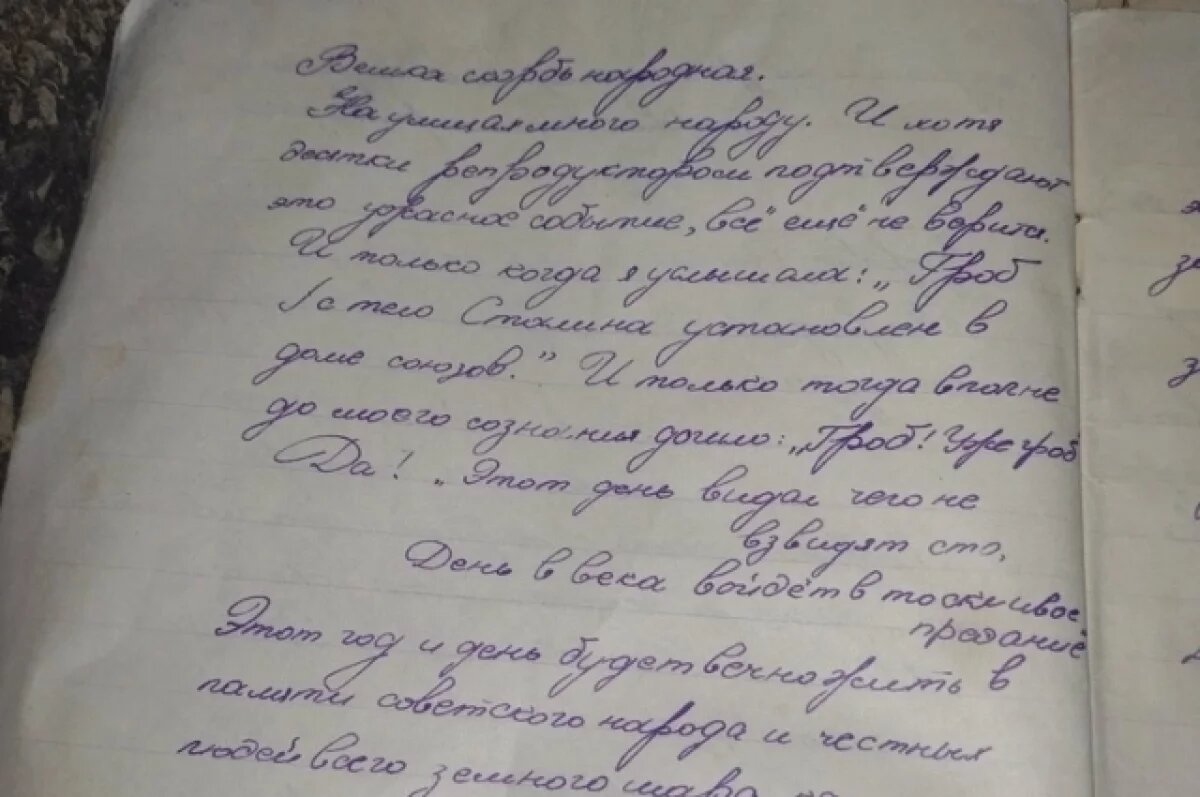 Велика скорбь народная.
На улицах много народу. И хотя
десятки репродукторов подтверждают
это ужасное событие, всё ещё не верится.
И только когда я услышала: „Гроб
с тело Сталина установлен в
доме союзов.” И только тогда вполне
до моего сознания дошло: „Гроб! Уже гроб
Да! „Этот день видал чего не
взвидят сто,
День в века войдёт в тоскливое
предание
Этот год и день будет вечно жить в
памяти советского народа и честных
людей всего земного шара